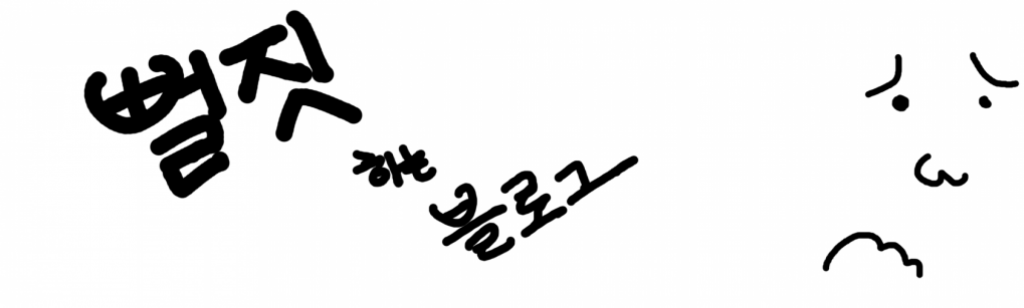 뻘짓
하는
블로그